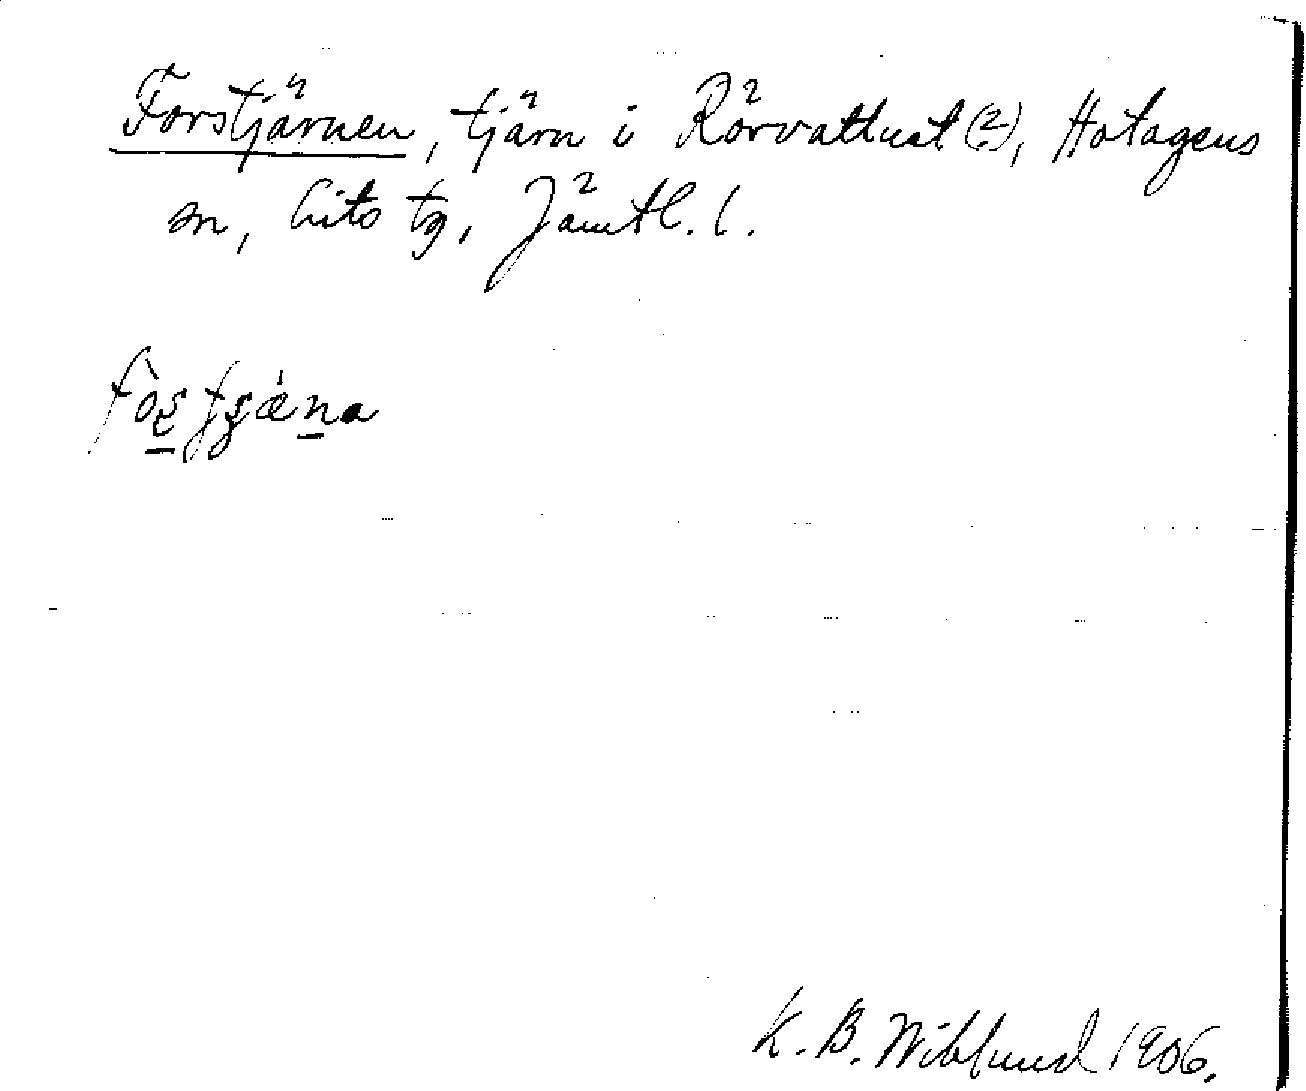 Forstjärnen, tjärn i Rörvattnet (?), Hotagens
sn, Lits tg, Jämtl. l.
K. B. Wiklund 1906.